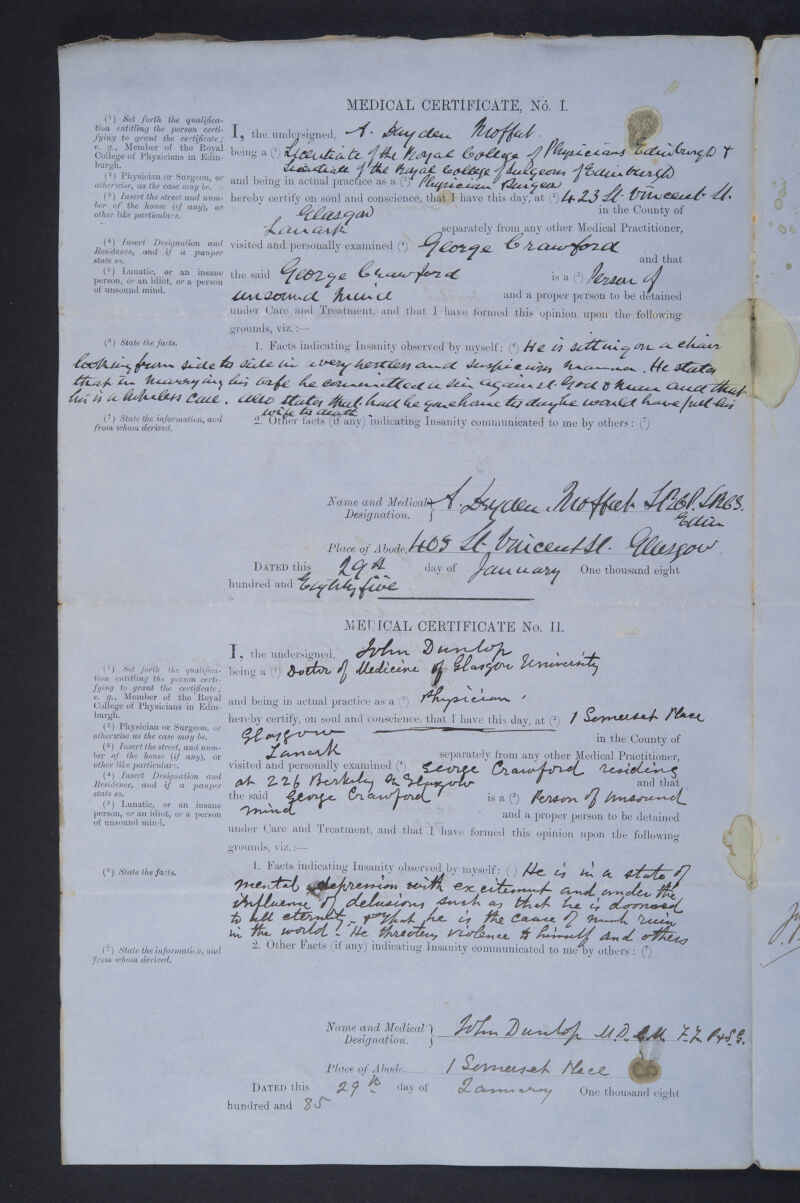 MEDICAL CERTIFICATE, No. I.
(¹) Set forth the qualifica-
tion entitling the person certi-
fying to grant the certificate;
e. g., Member of the Royal
College of Physicians in Edin-
burgh.
(²) Physician or Surgeon, or
otherwise, as the case may be.
(³) Insert the street and num-
ber of the house (if any), or
other like particulars.
(⁴) Insert Designation and
Residence, and if a pauper
state so.
(⁵) Lunatic, or an insane
person, or an idiot, or a person
of unsound mind.
(⁶) State the facts.
(⁷) State the information, and
from whom derived.
I, the undersigned, A. Dryden Moffat
being a (¹) Licentiate of the Royal College of Physicians Edinburgh &
Licentiate of the Royal College of Surgeons of Edinburgh
and being in actual practice as a (²) Physician Surgeon
hereby certify on soul and conscience, that I have this day, at (³) 423 St. Vincent St.
Glasgow in the County of
Lanark separately from any other Medical Practitioner,
visited and personally examined (⁴) George Crawford
and that
the said George Crawford is a (⁵) Person of
unsound mind and a proper person to be detained
under Care and Treatment, and that I have formed this opinion upon the following
grounds, viz.:—
1. Facts indicating Insanity observed by myself: (⁶) He is sitting on a chair
looking from side to side in a very restless and suspicious manner. He states
that in marrying his wife he committed a sin against God & man and that
his is a hopeless case. Also states that had he gone home to day he would have put his
wife to death.
2. Other facts (if any) indicating Insanity communicated to me by others: (⁷)
Name and Medical
Designation. A. Dryden Moffat LRCP. LRCS.
Edin
Place of Abode, 403 St. Vincent St. Glasgow
DATED this 29th day of January One thousand eight
hundred and Eighty five
MEDICAL CERTIFICATE No. II.
(¹) Set forth the qualifica-
tion entitling the person certi-
fying to grant the certificate;
e. g., Member of the Royal
College of Physicians in Edin-
burgh.
(²) Physician or Surgeon, or
otherwise as the case may be.
(³) Insert the street, and num-
ber of the house (if any), or
other like particulars.
(⁴) Insert Designation and
Residence, and if a pauper
state so.
(⁵) Lunatic, or an insane
person, or an idiot, or a person
of unsound mind.
(⁶) State the facts.
(⁷) State the information, and
from whom derived.
I, the undersigned, John Dunlop
being a (¹) Doctor of Medicine of Glasgow University
and being in actual practice as a (²) Physician
hereby certify, on soul and conscience, that I have this day, at (³) 1 Somerset Place
Glasgow in the County of
Lanark separately from any other Medical Practitioner,
visited and personally examined (⁴) George Crawford residing
at 226 Berkeley St Glasgow and that
the said George Crawford is a (⁵) Person of unsound
mind and a proper person to be detained
under Care and Treatment, and that I have formed this opinion upon the following
grounds, viz.:—
1. Facts indicating Insanity observed by myself: ( ) He is in a state of
mental depression with excitement and under the
influence of delusions such as that he is doomed
to all eternity - & that he is the cause of much ruin
in the world. He threatens violence to himself and others
2. Other Facts (if any) indicating Insanity communicated to me by others: (⁷)
Name and Medical
Designation. John Dunlop M.D., C.M. F.F. P. & S. G.
Place of Abode, 1 Somerset Place
DATED this 29th day of January One thousand eight
hundred and 85